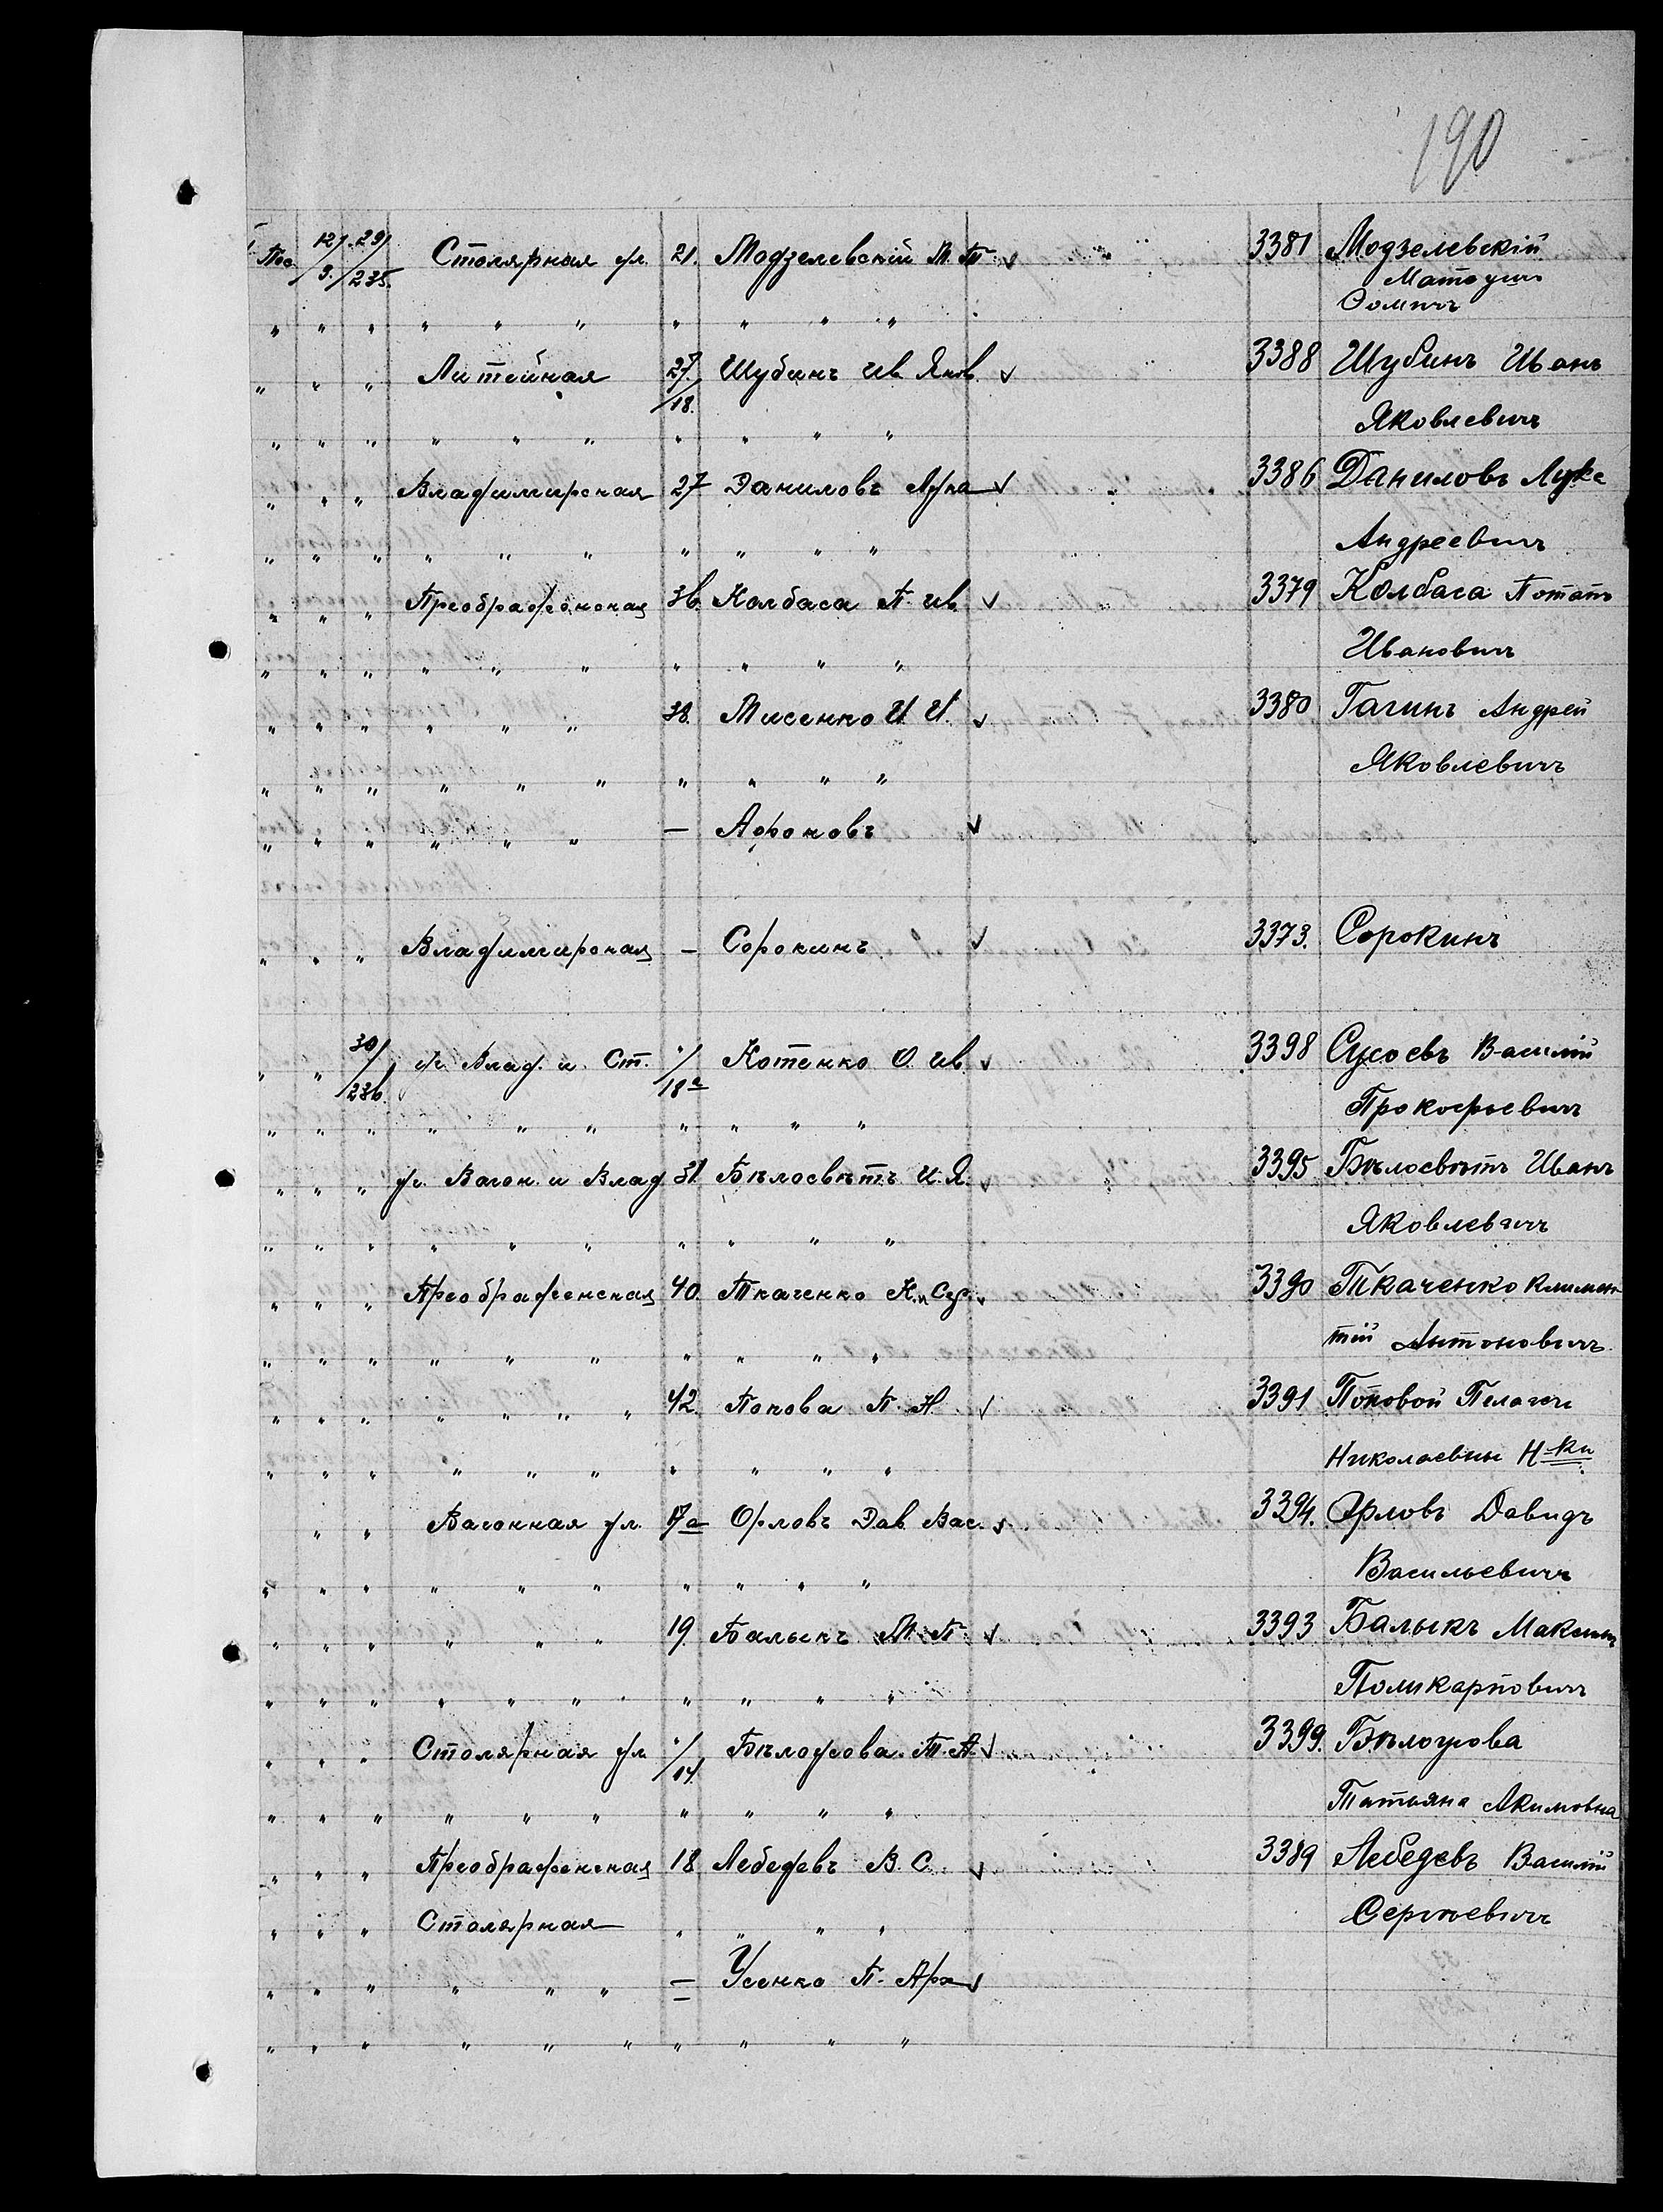 190
Пос. 12/9. 29/235. Столярная ул. 21. Модзелевский М. Т. ✓ 3381 Модзелевскій
Матвѣй
Ѳомичъ
" " " " " " " " " "
" " " Литейная 27./18. Шубинъ Ив. Яков. ✓ 3388 Шубинъ Иванъ
" " " " " " " " " " Яковлевичъ
" " " Владимирская 27 Даниловъ Лука ✓ 3386 Даниловъ Лука
" " " " " " " " " " Андреевичъ
" " " Преображенская 36 Колбаса П. Ив. ✓ 3379 Колбаса Потапъ
" " " " " " " " " " Ивановичъ
" " " " " " 38. Мисенко И. И. ✓ 3380 Гагинъ Андрей
" " " " " " " " " " Яковлевичъ
" " " " " " — Афоновъ ✓
" " " Владимирская — Сорокинъ ✓ 3373. Сорокинъ
" " 30/236. уг. Влад. и Ст. "/18а Котенко О. Ив. ✓ 3398 Сысоевъ Василій
" " " " " " " " " " Прокофьевичъ
" " " уг. Вагон. и Влад. 31. Бѣлосвѣтъ И. Я. ✓ 3395 Бѣлосвѣтъ Иванъ
" " " " " " " " " " Яковлевичъ
" " " Преображенская 40. Ткаченко К. и Су. ✓ 3390 Ткаченко Климен-
" " " " " " " " " " тій Антоновичъ
" " " " " " " 42. Попова П. Н. ✓ 3391 Поповой Пелагеи
" " " " " " " " " " Николаевны Н-ки
" " Вагонная ул. 17а Орловъ Дав. Вас. ✓ 3394. Орловъ Давидъ
" " " " " " " " " " Васильевичъ
" " " " " " 19. Балыкъ М. П. ✓ 3393 Балыкъ Максимъ
" " " " " " " " " " Поликарповичъ
" " " Столярная ул. "/14. Бѣлоусова Т. А. ✓ 3399. Бѣлоусова
" " " " " " " " " " Татьяна Акимовна
" " " Преображенская 18 Лебедевъ В. С. ✓ 3389 Лебедевъ Василій
" " " Столярная " " " " Сергѣевичъ
" " " " " " — Усенко П. Арх. ✓
" " " " " " " " " "